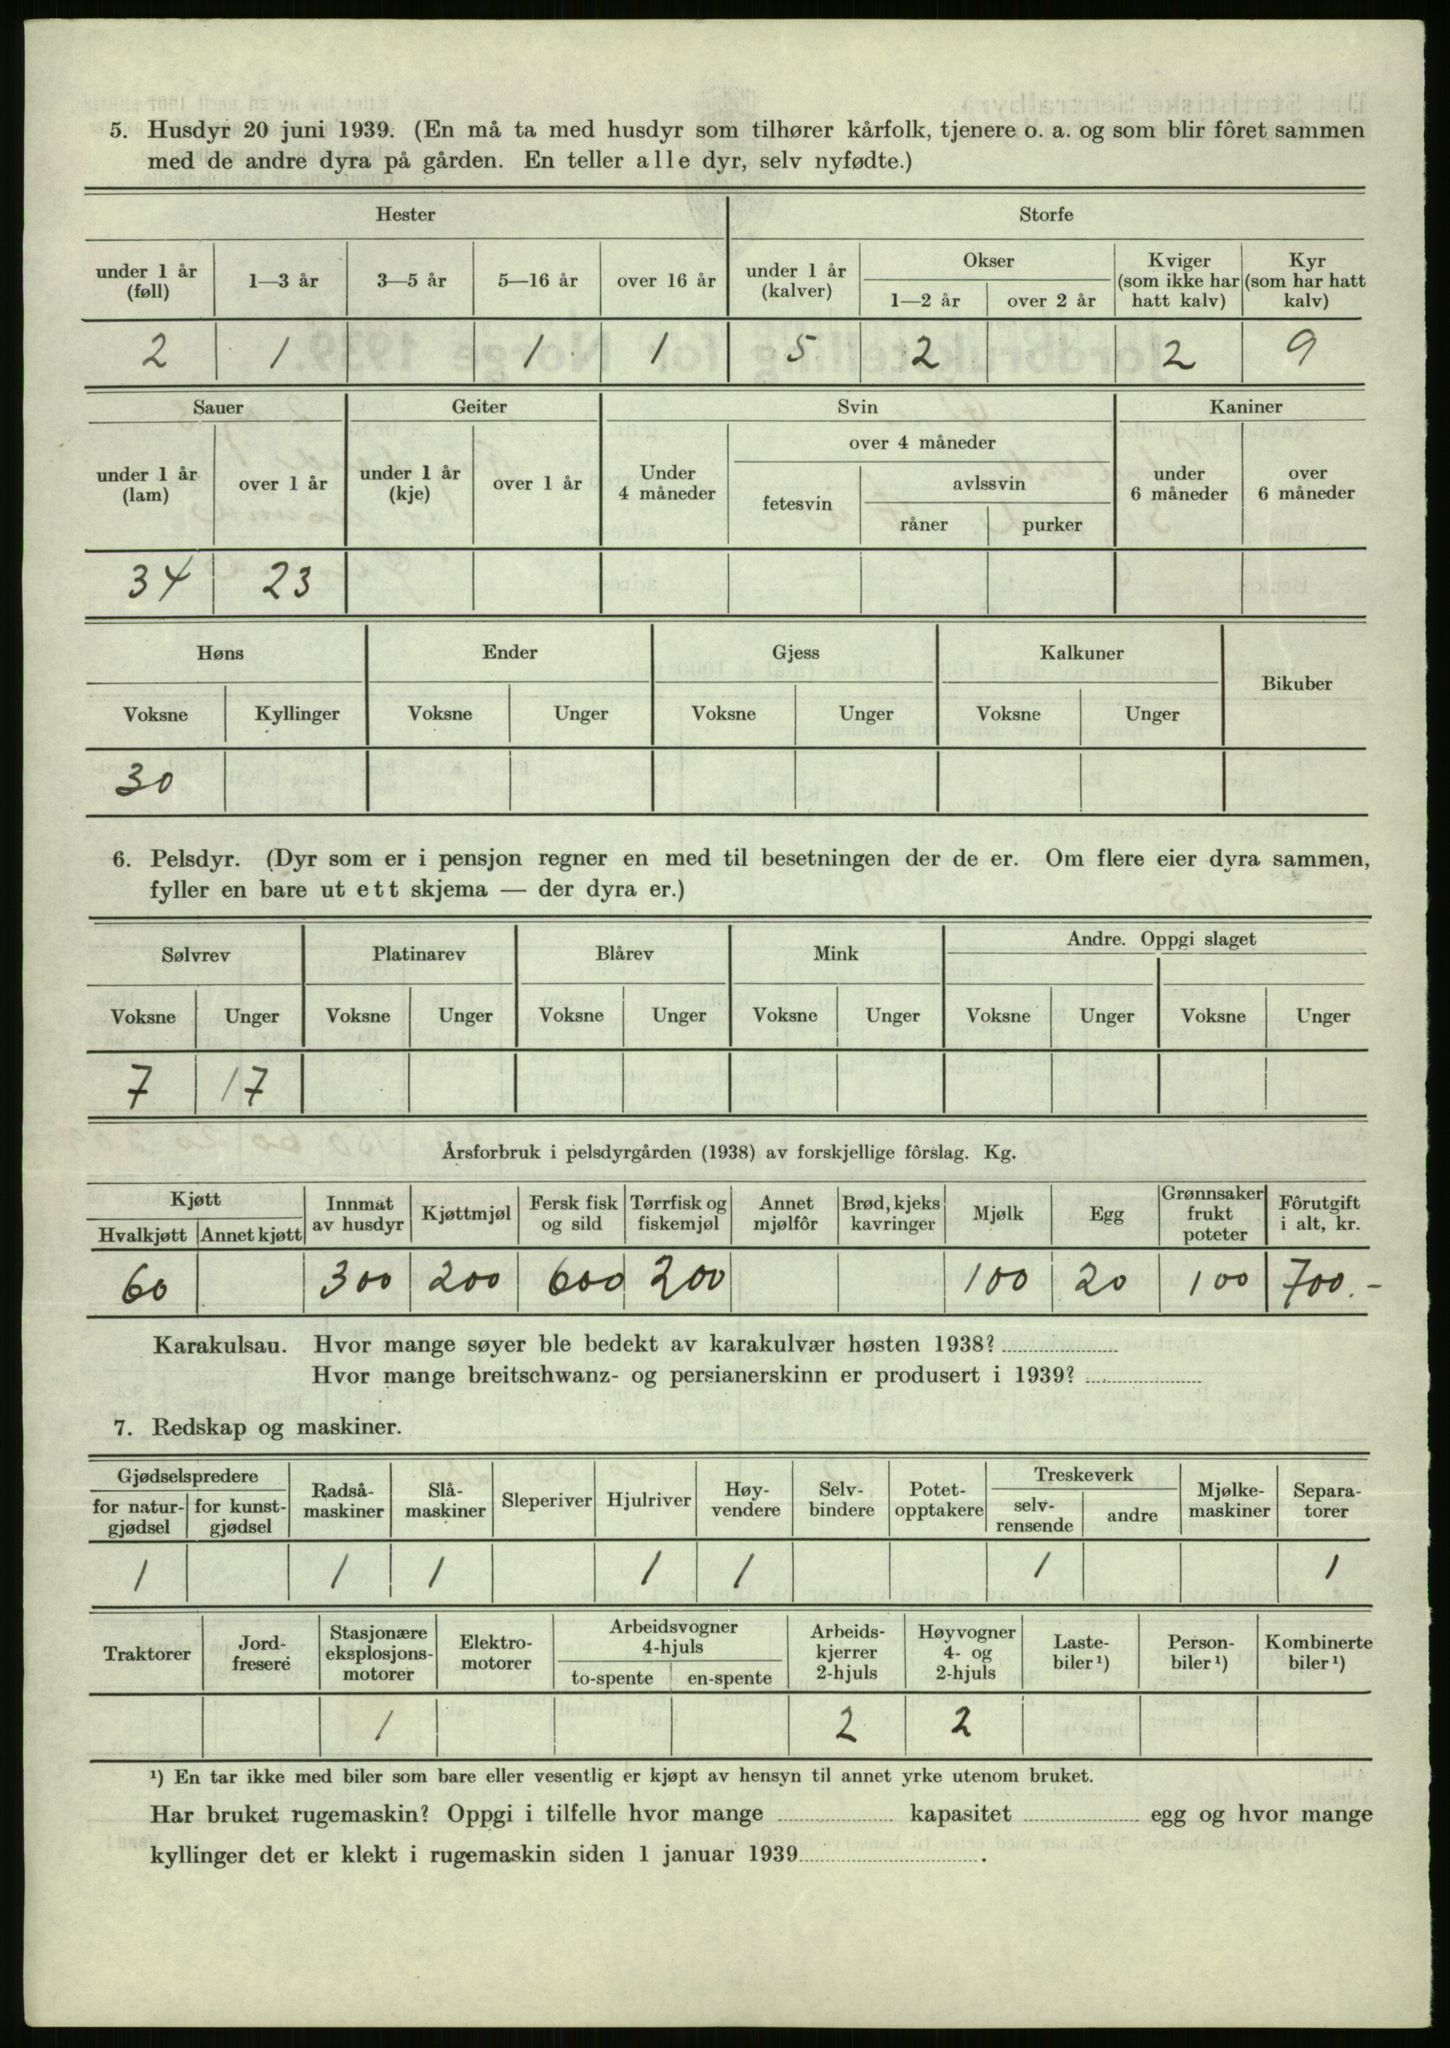 5. Husdyr 20 juni 1939. (En må ta med husdyr som tilhører kårfolk, tjenere o. a. og som blir fôret sammen
med de andre dyra på gården. En teller alle dyr, selv nyfødte.)
Hester Storfe
under 1 år (føll) 1—3 år 3—5 år 5—16 år over 16 år under 1 år (kalver) Okser 1—2 år over 2 år Kviger (som ikke har hatt kalv) Kyr (som har hatt kalv)
2 1 1 1 5 2 2 9
Sauer Geiter Svin Kaniner
under 1 år (lam) over 1 år under 1 år (kje) over 1 år Under 4 måneder over 4 måneder fetesvin avlssvin råner purker under 6 måneder over 6 måneder
34 23
Høns Ender Gjess Kalkuner Bikuber
Voksne Kyllinger Voksne Unger Voksne Unger Voksne Unger
30
6. Pelsdyr. (Dyr som er i pensjon regner en med til besetningen der de er. Om flere eier dyra sammen,
fyller en bare ut ett skjema — der dyra er.)
Sølvrev Platinarev Blårev Mink Andre. Oppgi slaget
Voksne Unger Voksne Unger Voksne Unger Voksne Unger Voksne Unger Voksne Unger
7 17
Årsforbruk i pelsdyrgården (1938) av forskjellige fôrslag. Kg.
Kjøtt Hvalkjøtt Annet kjøtt Innmat av husdyr Kjøttmjøl Fersk fisk og sild Tørrfisk og fiskemjøl Annet mjølfôr Brød, kjeks kavringer Mjølk Egg Grønnsaker frukt poteter Fôrutgift i alt, kr.
60 300 200 600 200 100 20 100 700.-
Karakulsau. Hvor mange søyer ble bedekt av karakulvær høsten 1938?
Hvor mange breitschwanz- og persianerskinn er produsert i 1939?
7. Redskap og maskiner.
Gjødselspredere for natur-gjødsel for kunst-gjødsel Radså-maskiner Slå-maskiner Sleperiver Hjulriver Høy-vendere Selv-bindere Potet-opptakere Treskeverk selv-rensende andre Mjølke-maskiner Separa-torer
1 1 1 1 1 1 1
Traktorer Jord-fresere Stasjonære eksplosjons-motorer Elektro-motorer Arbeidsvogner 4-hjuls to-spente en-spente Arbeids-kjerrer 2-hjuls Høyvogner 4- og 2-hjuls Laste-biler¹) Person-biler¹) Kombinerte biler¹)
1 2 2
¹) En tar ikke med biler som bare eller vesentlig er kjøpt av hensyn til annet yrke utenom bruket.
Har bruket rugemaskin? Oppgi i tilfelle hvor mange kapasitet egg og hvor mange
kyllinger det er klekt i rugemaskin siden 1 januar 1939.